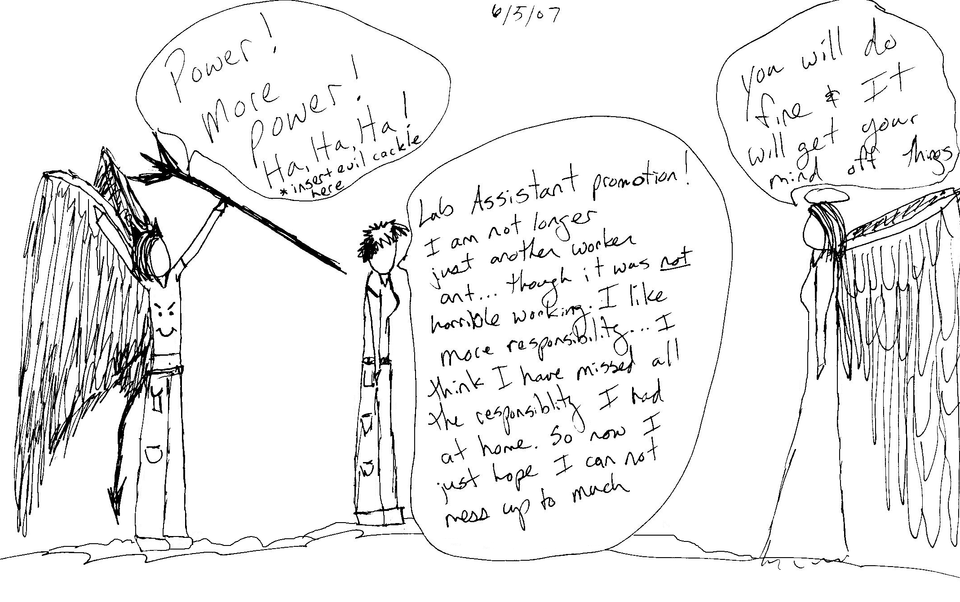 6/5/07
Power!
More
Power!
Ha, Ha, Ha!
*insert evil cackle
here
Lab Assistant promotion!
I am not longer
just another worker
ant... though it was not
horrible working. I like
more responsibility... I
think I have missed all
the responsiblity I had
at home. So now I
just hope I can not
mess up to much
You will do
fine & It
will get your
mind off things